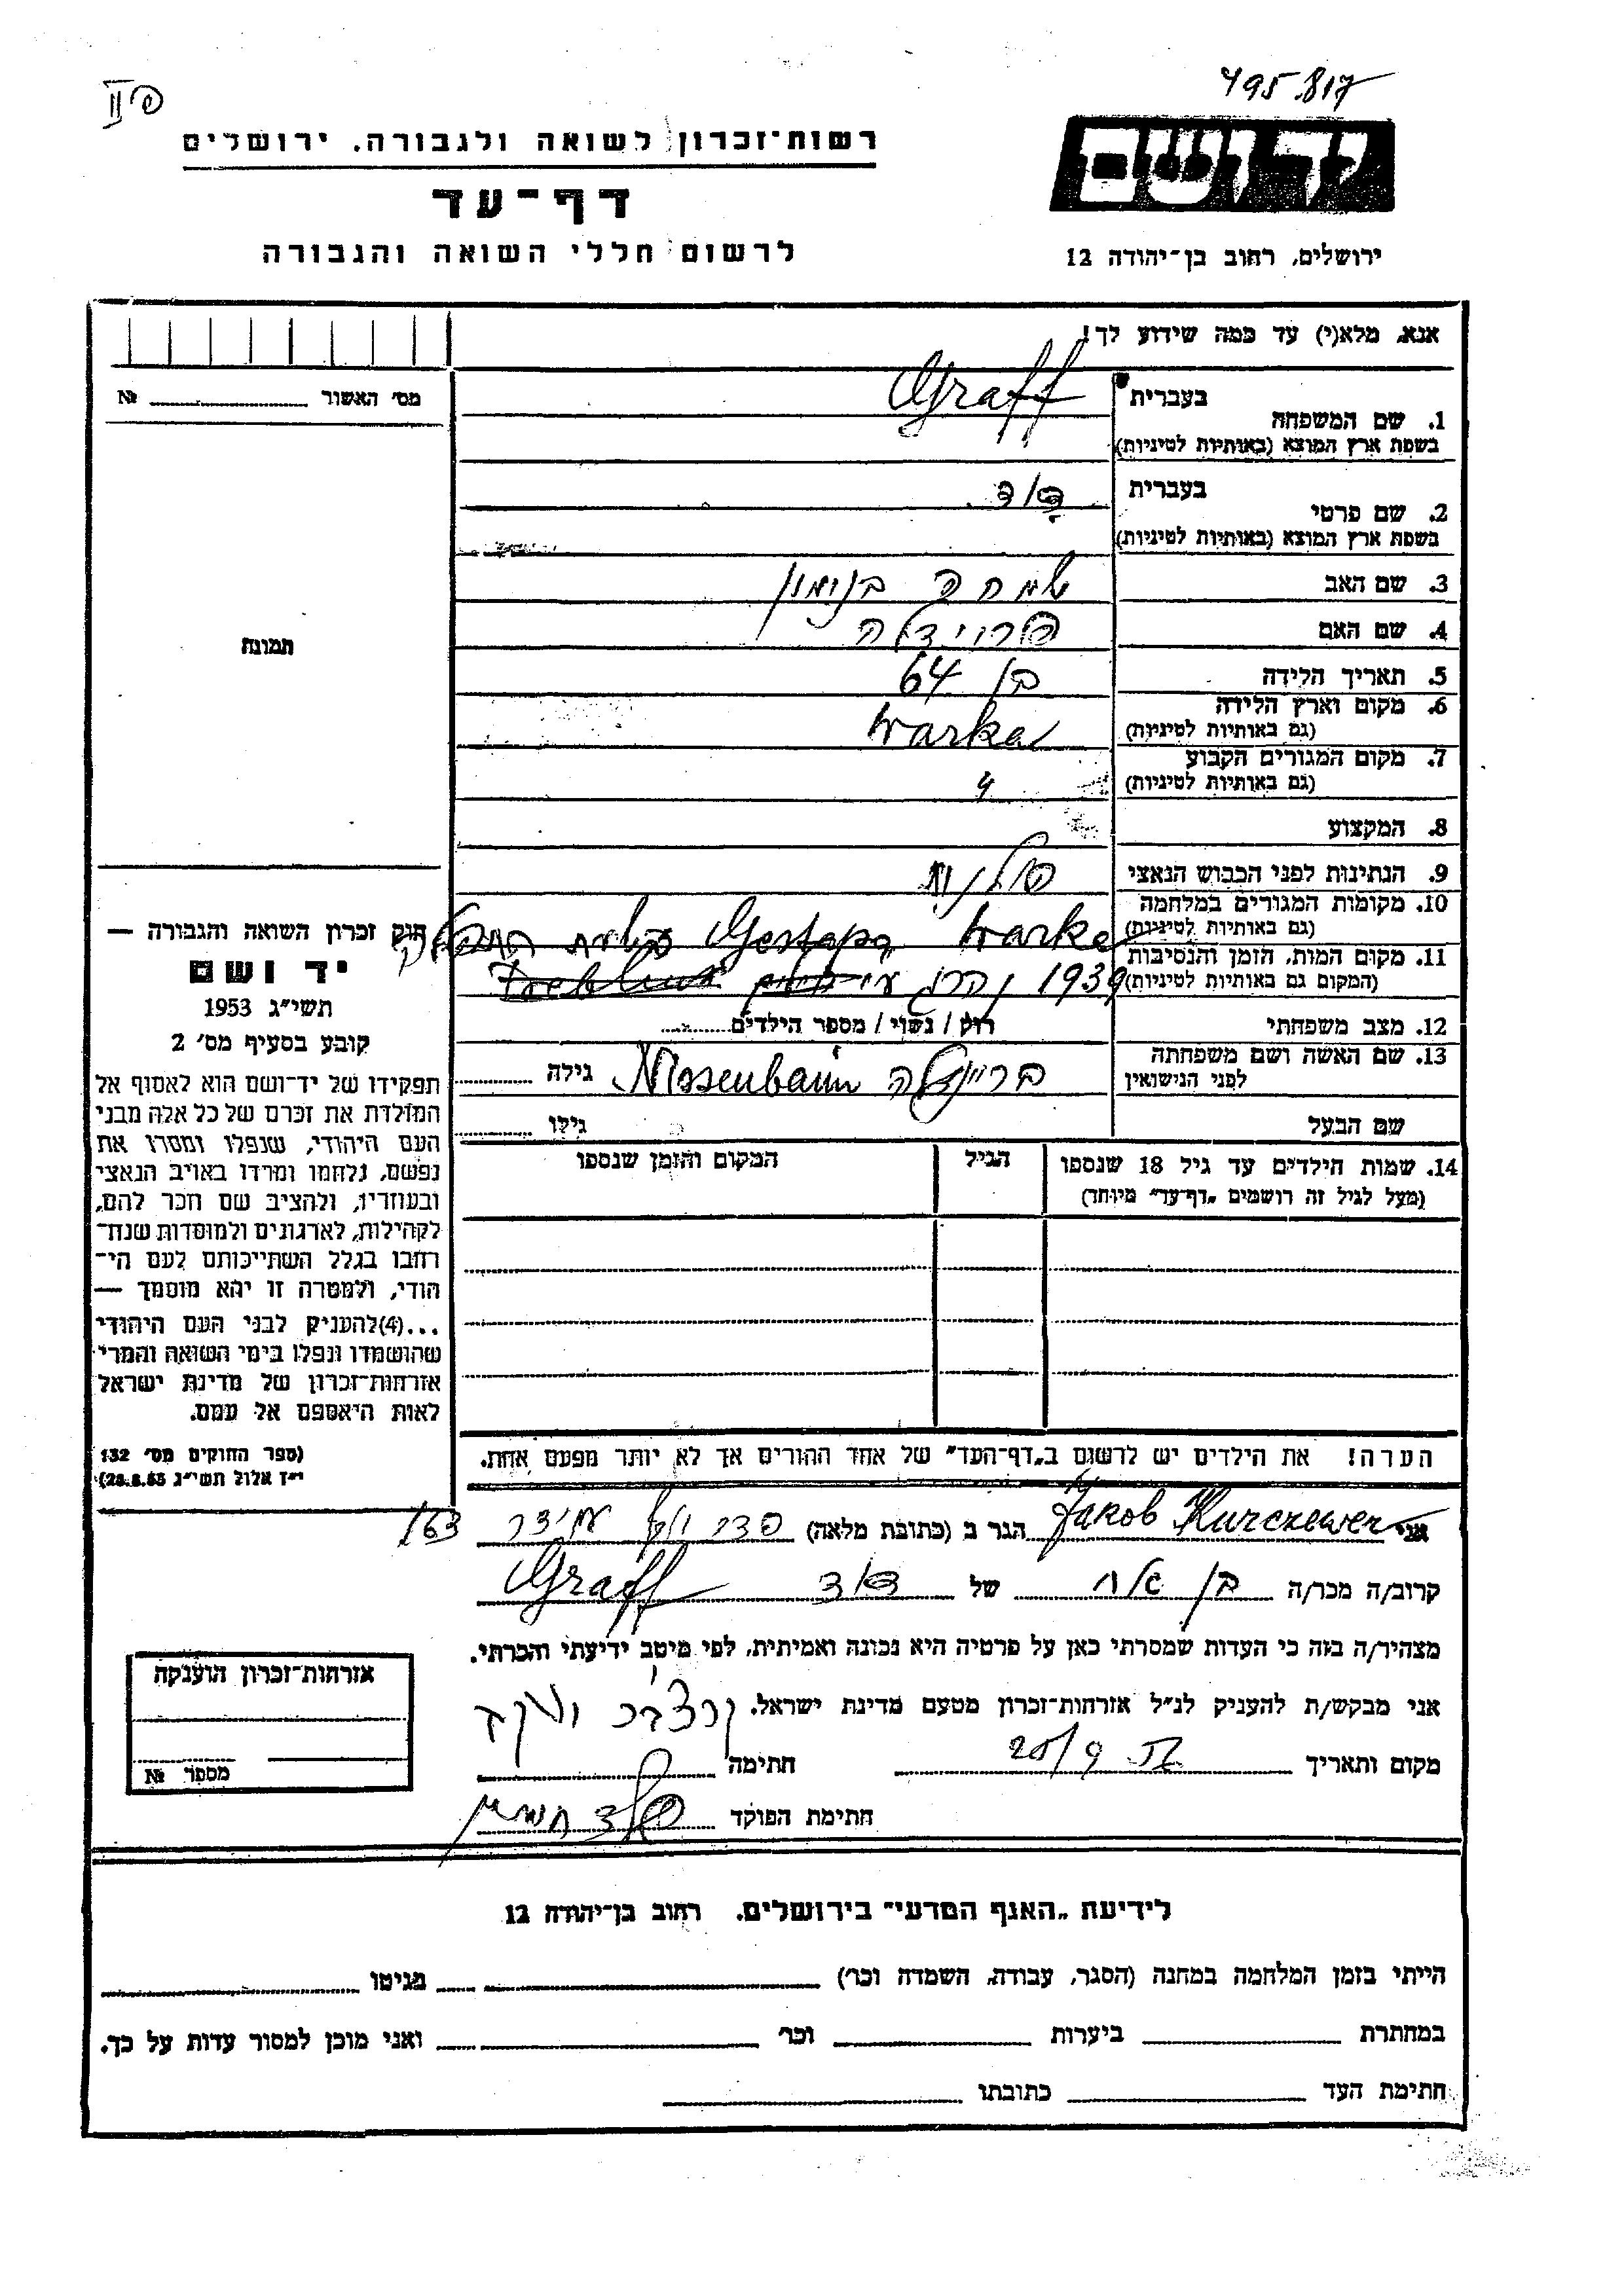 495.817
פ II
יד ושם
רשות־זכרון לשואה ולגבורה, ירושלים
דף־עד
לרשום חללי השואה והגבורה
ירושלים, רחוב בן־יהודה 12
אנא, מלא(י) עד כמה שידוע לך!
מס' האשור № 
1. שם המשפחה בעברית Graff
בשפת ארץ המוצא (באותיות לטיניות)
2. שם פרטי בעברית דוד
בשפת ארץ המוצא (באותיות לטיניות)
3. שם האב שמחה בנימין
4. שם האם פרוידלה
תמונה
5. תאריך הלידה בן 64
6. מקום וארץ הלידה Warka
(גם באותיות לטיניות)
7. מקום המגורים הקבוע
(גם באותיות לטיניות) "
8. המקצוע
9. הנתינות לפני הכבוש הנאצי פולנית
10. מקומות המגורים במלחמה Warka
(גם באותיות לטיניות)
11. מקום המות, הזמן והנסיבות 1939 נהרג ע"י Gestapo
(המקום גם באותיות לטיניות)
12. מצב משפחתי רוק / נשוי / מספר הילדים
13. שם האשה ושם משפחתה ברײנדלה Nissenbaum גילה
לפני הנישואין
שם הבעל גילו
14. שמות הילדים עד גיל 18 שנספו הגיל המקום והזמן שנספו
(מעל לגיל זה רושמים "דף־עד" מיוחד)
חוק זכרון השואה והגבורה —
יד ושם
תשי"ג 1953
קובע בסעיף מס' 2
תפקידו של יד־ושם הוא לאסוף אל
המולדת את זכרם של כל אלה מבני
העם היהודי, שנפלו ומסרו את
נפשם, נלחמו ומרדו באויב הנאצי
ובעוזריו, ולהציב שם וזכר להם,
לקהילות, לארגונים ולמוסדות שנח־
רבו בגלל השתייכותם לעם הי־
הודי, ולמטרה זו יהא מוסמך —
...(4) להעניק לבני העם היהודי
שהושמדו ונפלו בימי השואה והמרי
אזרחות־זכרון של מדינת ישראל
לאות היאספם אל עמם.
(ספר החוקים מס' 132
י"ז אלול תשי"ג 28.8.53)
הערה! את הילדים יש לרשום ב"דף־העד" של אחד ההורים אך לא יותר מפעם אחת.
אני Jakob Kurczewer הגר ב (כתובת מלאה) 163
קרוב/ה מכר/ה בן אח של דוד Graff
מצהיר/ה בזה כי העדות שמסרתי כאן על פרטיה היא נכונה ואמיתית, לפי מיטב ידיעתי והכרתי.
אני מבקש/ת להעניק לנ"ל אזרחות־זכרון מטעם מדינת ישראל.
מקום ותאריך 20/9 חתימה
חתימת הפוקד
אזרחות־זכרון הוענקה
מספר №
לידיעת "האגף המדעי" בירושלים, רחוב בן־יהודה 12
הייתי בזמן המלחמה במחנה (הסגר, עבודה, השמדה וכו') בגיטו
במחתרת ביערות וכו' ואני מוכן למסור עדות על כך.
חתימת העד כתובתו